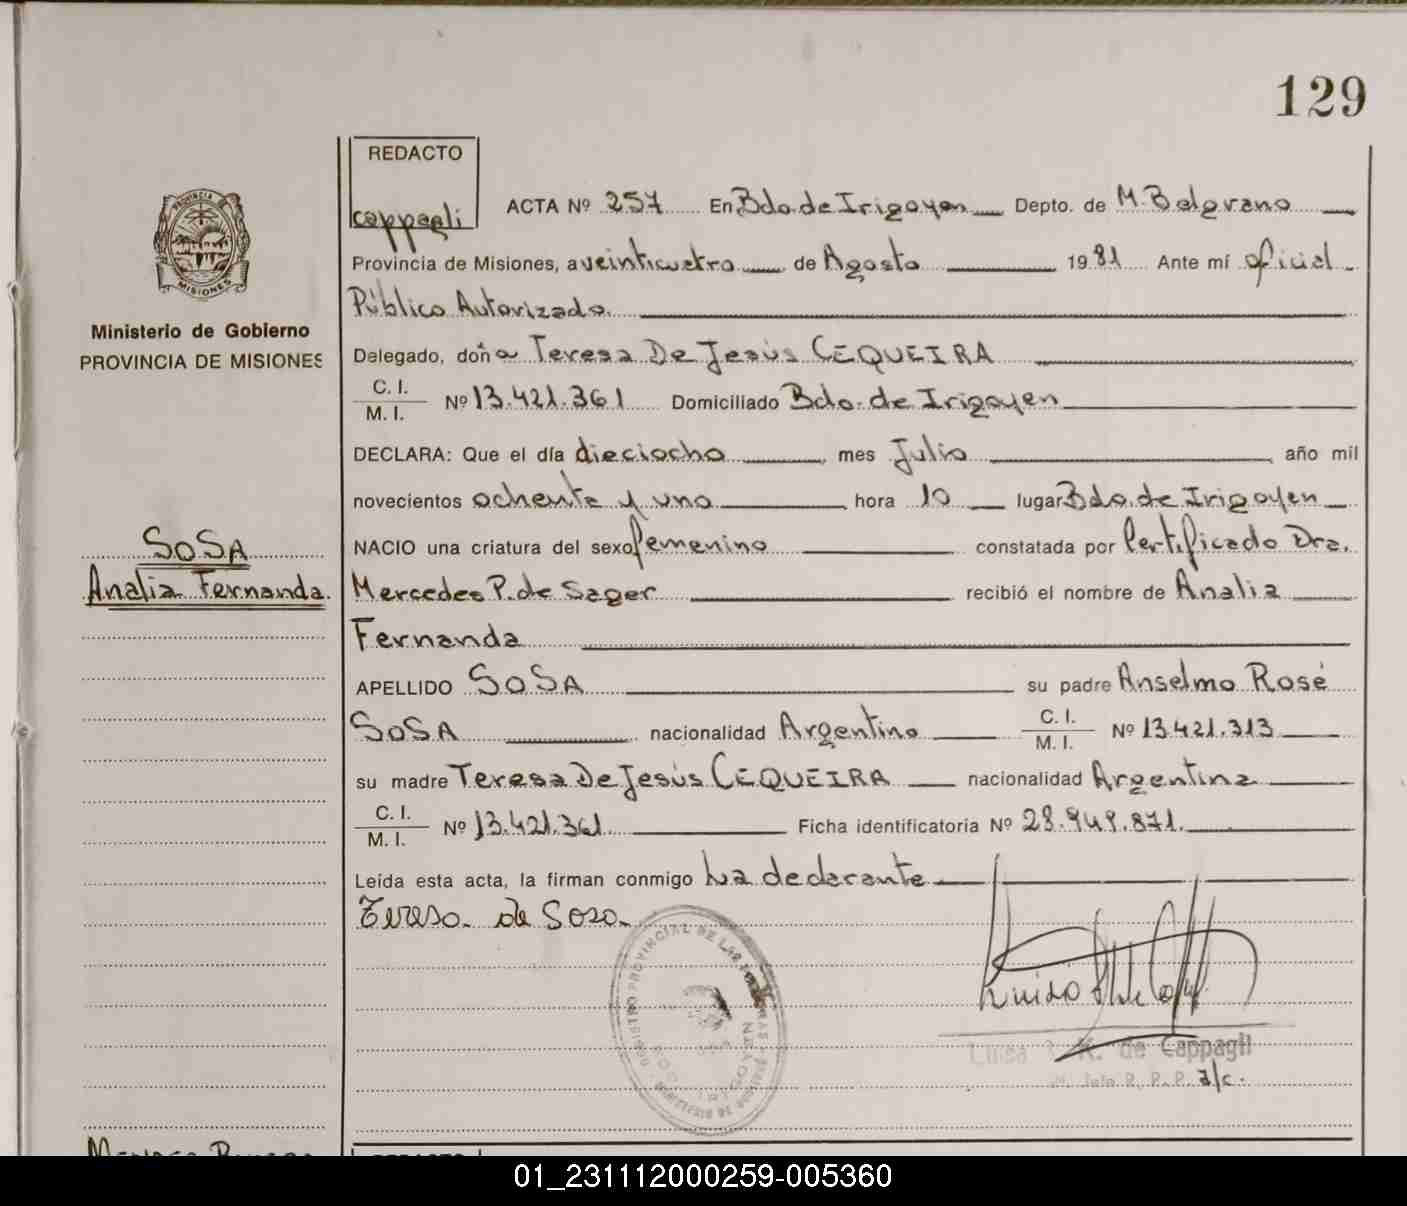 129
REDACTO
cappagli
ACTA Nº 257 En Bdo. de Irigoyen Depto. de M. Belgrano
Provincia de Misiones, a veinticuatro de Agosto 19 81 Ante mí oficial
Público Autorizado.
Delegado, doña Teresa De Jesús CEQUEIRA
C. I.
M. I. Nº 13.421.361 Domiciliado Bdo. de Irigoyen
DECLARA: Que el día dieciocho mes Julio año mil
novecientos ochenta y uno hora 10 lugar Bdo. de Irigoyen
NACIO una criatura del sexo femenino constatada por Certificado Dra.
Mercedes P. de Sager recibió el nombre de Analia
Fernanda
APELLIDO SOSA su padre Anselmo Rosé
SOSA nacionalidad Argentino C. I.
M. I. Nº 13.421.313
su madre Teresa De Jesús CEQUEIRA nacionalidad Argentina
C. I.
M. I. Nº 13.421.361 Ficha identificatoria Nº 28.949.871.
Leída esta acta, la firman conmigo La declarante
Teresa de Soso
PROVINCIA DE
MISIONES
Ministerio de Gobierno
PROVINCIA DE MISIONES
SOSA
Analia Fernanda.
REGISTRO PROVINCIAL DE LAS PERSONAS
de Cappagli
a/c.
01_231112000259-005360